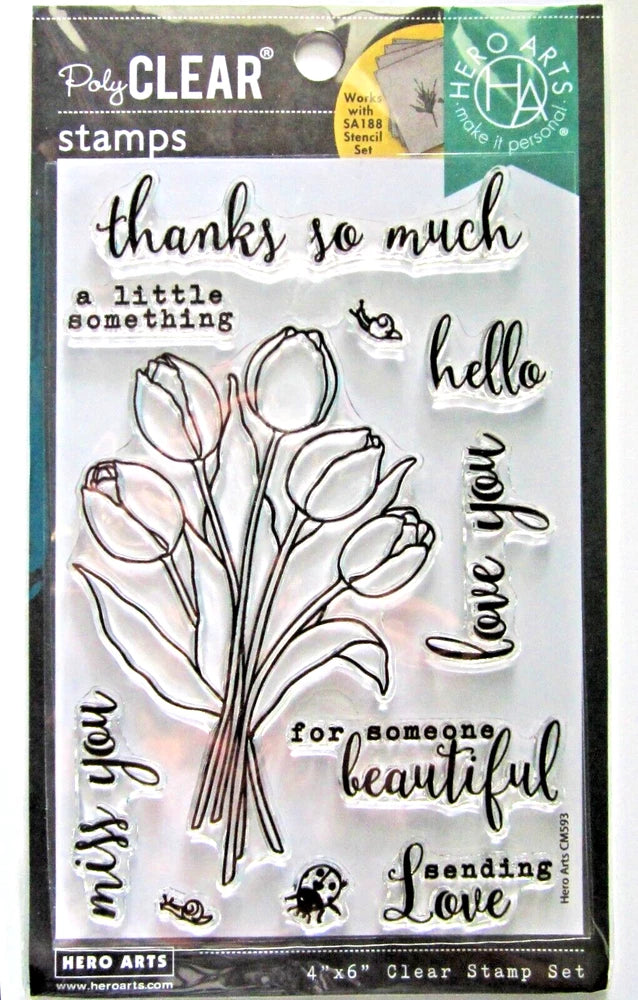 PolyCLEAR®
stamps
Works
with
SA188
Stencil
Set
HERO ARTS
HA
·make it personal·®
thanks so much
a little
something
hello
love you
miss you
for someone
beautiful
sending
Love
Hero Arts CM593
HERO ARTS
www.heroarts.com
4"x6" Clear Stamp Set